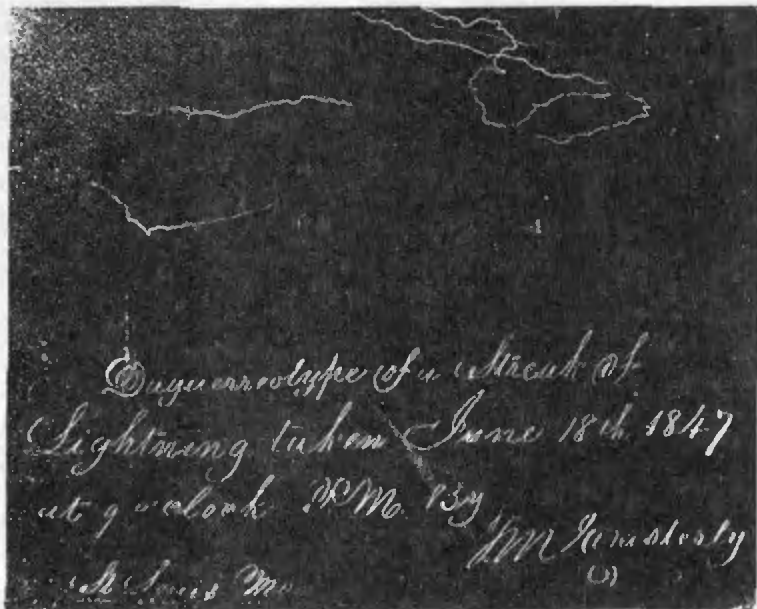 Daguerreotype of a Streak of
Lightning taken June 18th 1847
at 9 o'clock P.M. By
TM Easterly
St Louis Mo